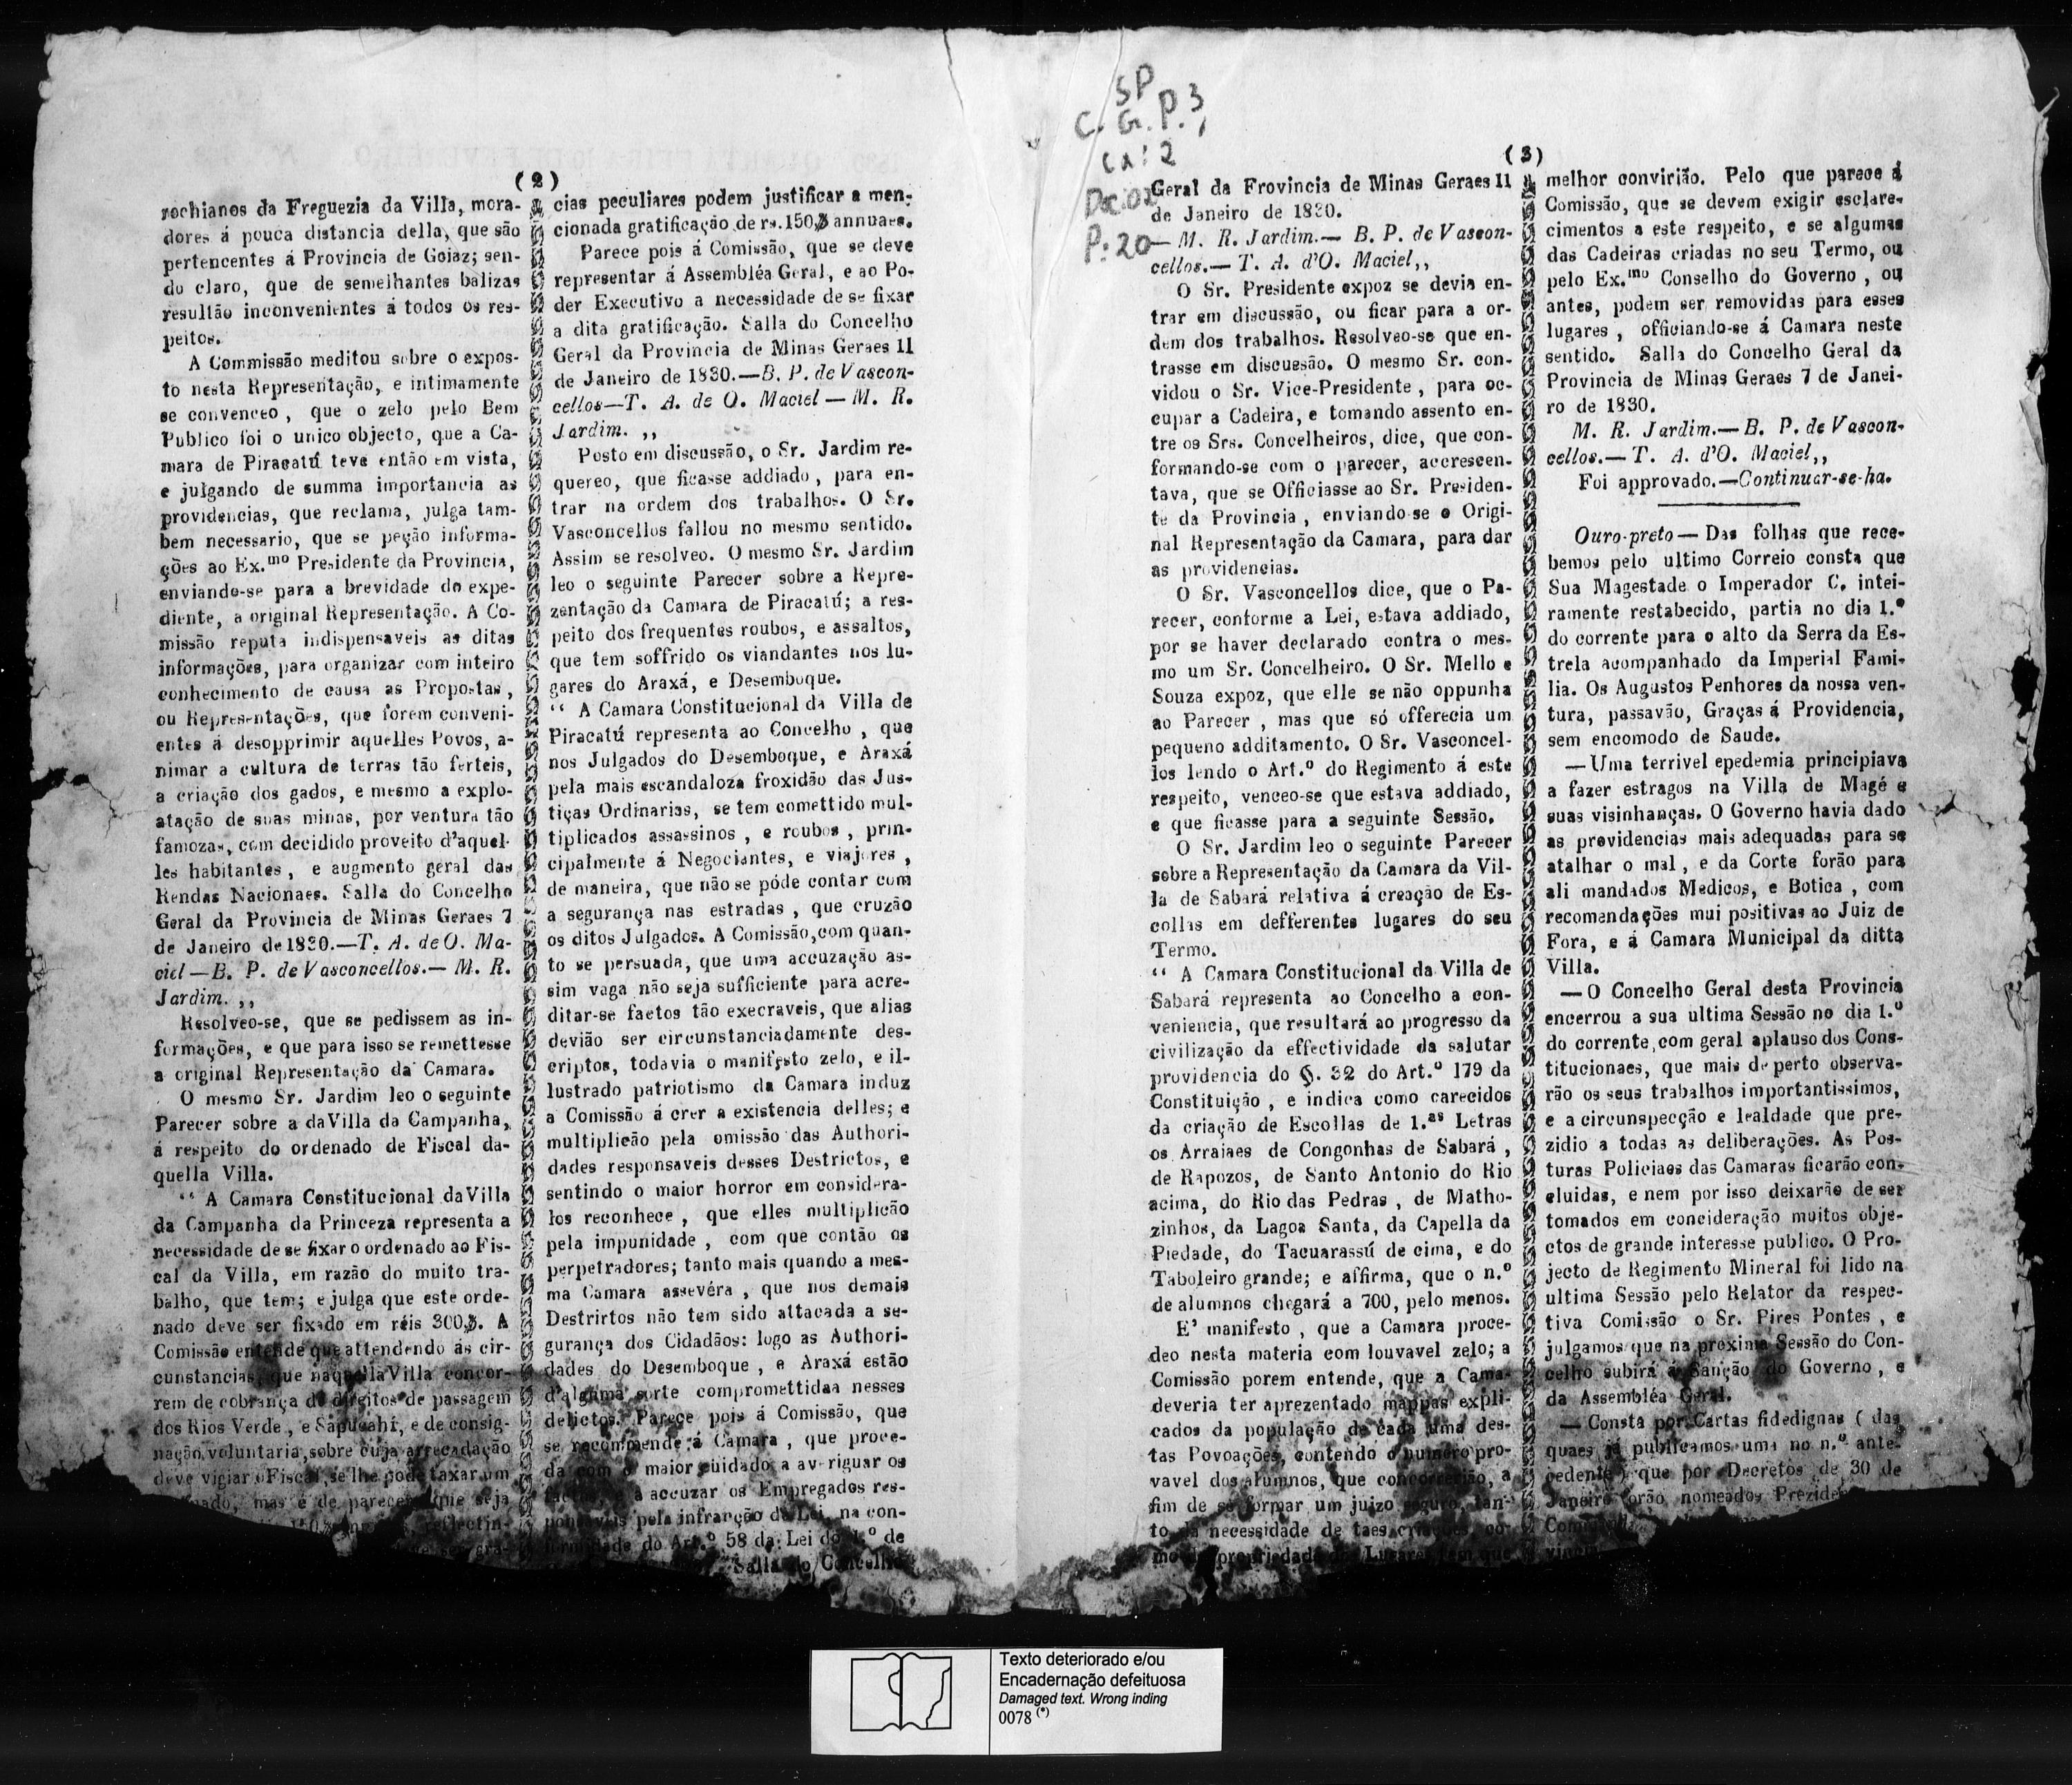 (2)
rochianos da Freguezia da Villa, mora-
dores á pouca distancia della, que são
pertencentes á Provincia de Goiaz; sen-
do claro, que de semelhantes balizas
resultão inconvenientes á todos os res-
peitos.
A Commissão meditou sobre o expos-
to nesta Representação, e intimamente
se convenceo, que o zelo pelo Bem
Publico foi o unico objecto, que a Ca-
mara de Piracatú teve então em vista,
e julgando de summa importancia as
providencias, que reclama, julga tam-
bem necessario, que se peção informa-
ções ao Ex.mo Presidente da Provincia,
enviando-se para a brevidade do expe-
diente, a original Representação. A Co-
missão reputa indispensaveis as ditas
informações, para organizar com inteiro
conhecimento de causa as Propostas,
ou Representações, que forem conveni-
entes á desopprimir aquelles Povos, a-
nimar a cultura de terras tão ferteis,
a criação dos gados, e mesmo a explo-
atação de suas minas, por ventura tão
famozas, com decidido proveito d'aquel-
les habitantes, e augmento geral das
Rendas Nacionaes. Salla do Concelho
Geral da Provincia de Minas Geraes 7
de Janeiro de 1830.—T. A. de O. Ma-
ciel—B. P. de Vasconcellos.—M. R.
Jardim. ,,
Resolveo-se, que se pedissem as in-
formações, e que para isso se remettesse
a original Representação da Camara.
O mesmo Sr. Jardim leo o seguinte
Parecer sobre a da Villa da Campanha,
á respeito do ordenado de Fiscal da-
quella Villa.
“ A Camara Constitucional da Villa
da Campanha da Princeza representa a
necessidade de se fixar o ordenado ao Fis-
cal da Villa, em razão do muito tra-
balho, que tem; e julga que este orde-
nado deve ser fixado em réis 300$. A
Comissão entende que attendendo ás cir-
cunstancias, que naquella Villa concor-
rem de cobrança de direitos de passagem
dos Rios Verde, e Sapucahí, e de consig-
nação voluntaria, sobre cuja arrecadação
deve vigiar o Fiscal, se lhe pode taxar um
mas é de parecer que seja
reflectin-
cias peculiares podem justificar a men-
cionada gratificação de rs. 150$ annuaes.
Parece pois á Comissão, que se deve
representar á Assembléa Geral, e ao Po-
der Executivo a necessidade de se fixar
a dita gratificação. Salla do Concelho
Geral da Provincia de Minas Geraes 11
de Janeiro de 1830.—B. P. de Vascon-
cellos—T. A. de O. Maciel—M. R.
Jardim. ,,
Posto em discussão, o Sr. Jardim re-
quereo, que ficasse addiado, para en-
trar na ordem dos trabalhos. O Sr.
Vasconcellos fallou no mesmo sentido.
Assim se resolveo. O mesmo Sr. Jardim
leo o seguinte Parecer sobre a Repre-
zentação da Camara de Piracatú; a res-
peito dos frequentes roubos, e assaltos,
que tem soffrido os viandantes nos lu-
gares do Araxá, e Desemboque.
“ A Camara Constitucional da Villa de
Piracatú representa ao Concelho, que
nos Julgados do Desemboque, e Araxá
pela mais escandaloza froxidão das Jus-
tiças Ordinarias, se tem comettido mul-
tiplicados assassinos, e roubos, prin-
cipalmente á Negociantes, e viajores,
de maneira, que não se póde contar com
a segurança nas estradas, que cruzão
os ditos Julgados. A Comissão, com quan-
to se persuada, que uma accuzação as-
sim vaga não seja sufficiente para acre-
ditar-se factos tão execraveis, que alias
devião ser circunstanciadamente des-
criptos, todavia o manifesto zelo, e il-
lustrado patriotismo da Camara induz
a Comissão á crer a existencia delles; e
multiplicão pela omissão das Authori-
dades responsaveis desses Destrictos, e
sentindo o maior horror em considera-
los reconhece, que elles multiplicão
pela impunidade, com que contão os
perpetradores; tanto mais quando a mes-
ma Camara assevéra, que nos demais
Destrirtos não tem sido attacada a se-
gurança dos Cidadãos: logo as Authori-
dades do Desemboque, e Araxá estão
d'alguma sorte compromettidaa nesses
delictos. Parece pois á Comissão, que
se recommende á Camara, que proce-
da com o maior cuidado a averiguar os
a accuzar os Empregados res-
ponsaveis pela infracção da Lei, na con-
formidade do Art.º 58 da Lei do 1.º de
Salla do Concelho
SP
C. G. P. 3,
Cx: 2
Doc: 02
P: 20
(3)
Geral da Frovincia de Minas Geraes 11
de Janeiro de 1830.
— M. R. Jardim.— B. P. de Vascon-
cellos.— T. A. d'O. Maciel,,
O Sr. Presidente expoz se devia en-
trar em discussão, ou ficar para a or-
dem dos trabalhos. Resolveo-se que en-
trasse em discussão. O mesmo Sr. con-
vidou o Sr. Vice-Presidente, para oc-
cupar a Cadeira, e tomando assento en-
tre os Srs. Concelheiros, dice, que con-
formando-se com o parecer, accrescen-
tava, que se Officiasse ao Sr. Presiden-
te da Provincia, enviando-se o Origi-
nal Representação da Camara, para dar
as providencias.
O Sr. Vasconcellos dice, que o Pa-
recer, conforme a Lei, estava addiado,
por se haver declarado contra o mes-
mo um Sr. Concelheiro. O Sr. Mello e
Souza expoz, que elle se não oppunha
ao Parecer, mas que só offerecia um
pequeno additamento. O Sr. Vasconcel-
los lendo o Art.º do Regimento á este
respeito, venceo-se que estava addiado,
e que ficasse para a seguinte Sessão.
O Sr. Jardim leo o seguinte Parecer
sobre a Representação da Camara da Vil-
la de Sabará relativa á creação de Es-
collas em defferentes lugares do seu
Termo.
“ A Camara Constitucional da Villa de
Sabará representa ao Concelho a con-
veniencia, que resultará ao progresso da
civilização da effectividade da salutar
providencia do §. 32 do Art.º 179 da
Constituição, e indica como carecidos
da criação de Escollas de 1.as Letras
os Arraiaes de Congonhas de Sabará,
de Rapozos, de Santo Antonio do Rio
acima, do Rio das Pedras, de Matho-
zinhos, da Lagoa Santa, da Capella da
Piedade, do Tacuarassú de cima, e do
Taboleiro grande; e affirma, que o n.º
de alumnos chegará a 700, pelo menos.
E' manifesto, que a Camara proce-
deo nesta materia com louvavel zelo; a
Comissão porem entende, que a Cama-
deveria ter aprezentado mappas expli-
cados da população de cada uma des-
tas Povoações, contendo o numero pro-
vavel dos alumnos, que concorrerião, a
fim de se formar um juizo seguro, tan-
to da necessidade de taes criações, co-
mo da propriedade dos Lugares em que
melhor convirião. Pelo que parece á
Comissão, que se devem exigir esclare-
cimentos a este respeito, e se algumas
das Cadeiras criadas no seu Termo, ou
pelo Ex.mo Conselho do Governo, ou
antes, podem ser removidas para esses
lugares, officiando-se á Camara neste
sentido. Salla do Concelho Geral da
Provincia de Minas Geraes 7 de Janei-
ro de 1830.
M. R. Jardim.— B. P. de Vascon-
cellos.— T. A. d'O. Maciel,,
Foi approvado.—Continuar-se-ha.
Ouro-preto— Das folhas que rece-
bemos pelo ultimo Correio consta que
Sua Magestade o Imperador C. intei-
ramente restabecido, partia no dia 1.º
do corrente para o alto da Serra da Es-
trela acompanhado da Imperial Fami-
lia. Os Augustos Penhores da nossa ven-
tura, passavão, Graças á Providencia,
sem encomodo de Saude.
—Uma terrivel epedemia principiava
a fazer estragos na Villa de Magé e
suas visinhanças. O Governo havia dado
as providencias mais adequadas para se
atalhar o mal, e da Corte forão para
ali mandados Medicos, e Botica, com
recomendações mui positivas ao Juiz de
Fora, e á Camara Municipal da ditta
Villa.
—O Concelho Geral desta Provincia
encerrou a sua ultima Sessão no dia 1.º
do corrente, com geral aplauso dos Cons-
titucionaes, que mais de perto observa-
rão os seus trabalhos importantissimos,
e a circunspecção e lealdade que pre-
zidio a todas as deliberações. As Pos-
turas Policiaes das Camaras ficarão con-
cluidas, e nem por isso deixarão de ser
tomados em concideração muitos obje-
ctos de grande interesse publico. O Pro-
jecto de Regimento Mineral foi lido na
ultima Sessão pelo Relator da respec-
tiva Comissão o Sr. Pires Pontes, e
julgamos que na proxima Sessão do Con-
celho subirá á Sanção do Governo, e
da Assembléa Geral.
— Consta por Cartas fidedignas ( das
quaes já publicamos uma no n.º ante-
cedente) que por Decretos de 30 de
Janeiro forão nomeados
Texto deteriorado e/ou
Encadernação defeituosa
Damaged text. Wrong inding
0078 (*)